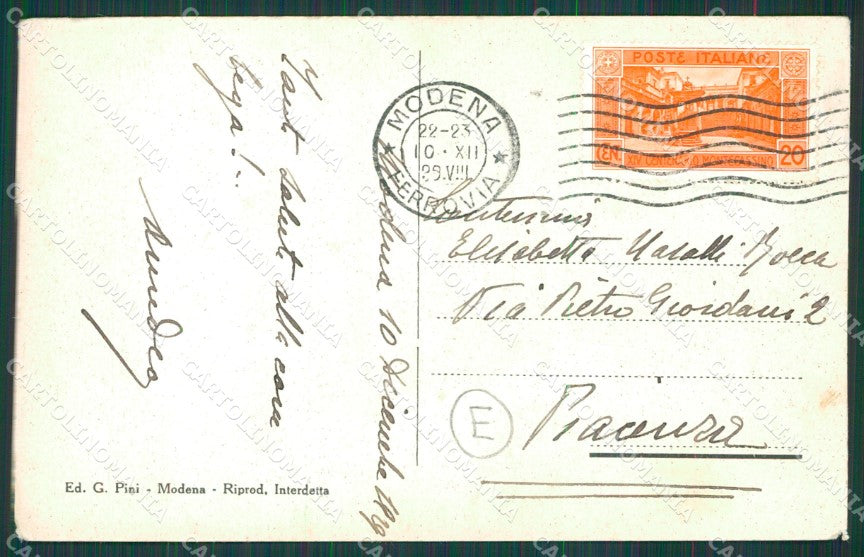 POSTE ITALIANE
CEN 20
XIV CENT. MONTECASSINO
MODENA
22-23
10·XII
29.VIII
FERROVIA
Modena 10 Dicembre
Tanti saluti alla cara
Elisabetta Rocca
Via Pietro Giordani 2
Piacenza
E
Ed. G. Pini - Modena - Riprod. Interdetta
CARTOLINOMANIA